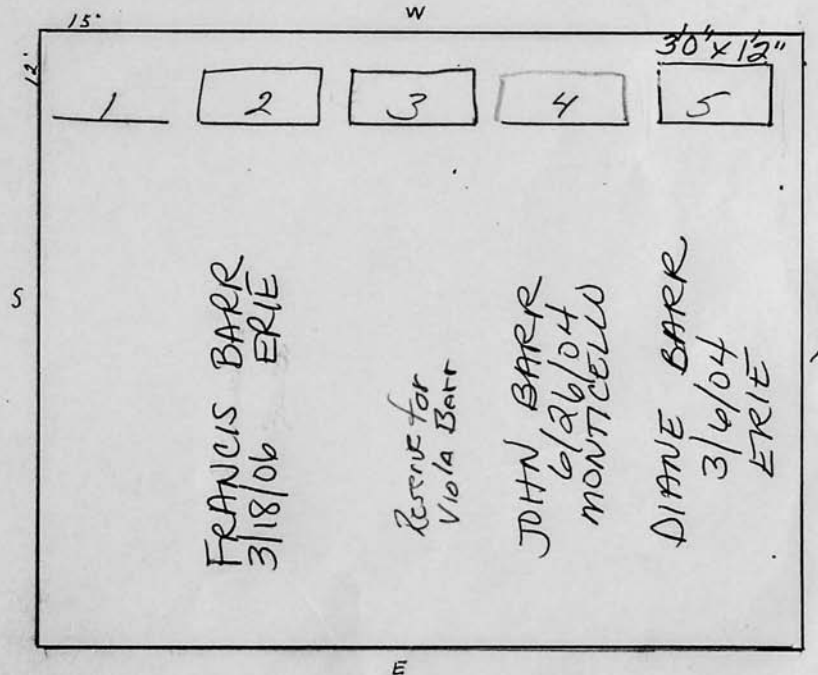 15'
W
12'
3'0" x 1'2"
1
2
3
4
5
S
FRANCIS BARR
3/18/06 ERIE
Reserve for
Viola Barr
JOHN BARR
6/26/04
MONTICELLO
DIANE BARR
3/6/04
ERIE
E